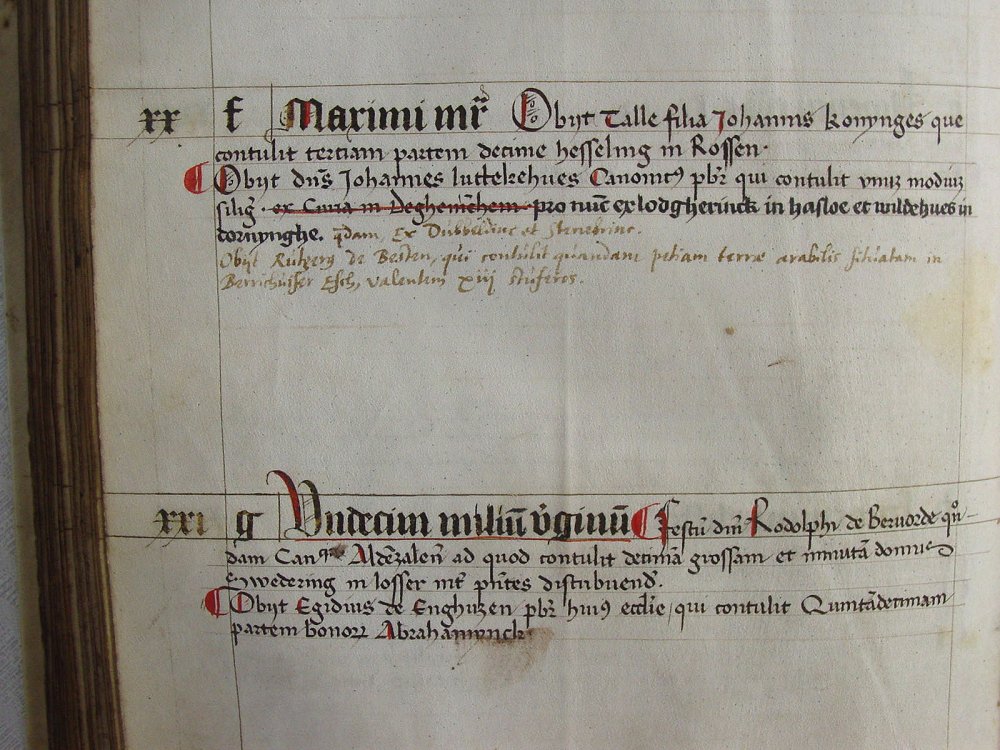 xx f Maximi mr̄ Obijt Talle filia Johannis konynges que
contulit terciam partem decime hesseling in Rossen.
Obijt dn̄s Johannes luttekehues Canonic9 pbr̄ qui contulit vnuz moduiz
siliḡ. ex Curia in Deghenn̄chem pro nunc ex lodgherinck in hasloe et wildehues in
dornynghe. q̄dam, Ex Dubbeldinc et
Obijt Rutgerus de Besten, qui contulit quandam petiam terrae arabilis situatam in
Berrichuiser Esch, valentem xiij stuferos.
xxi g Undecim miliū v̄ginū Festū dn̄i Rodolphi de Beruorde quō-
dam Can Aldēzaleñ ad quod contulit decimā grossam et minutā domus
Enwedering in losser int̄ pn̄tes distribuend̄.
Obijt Egidius de Enghuzen pbr̄ hui9 eccl̄ie, qui contulit Quintādecimam
partem honorꝝ Abrahamynck.